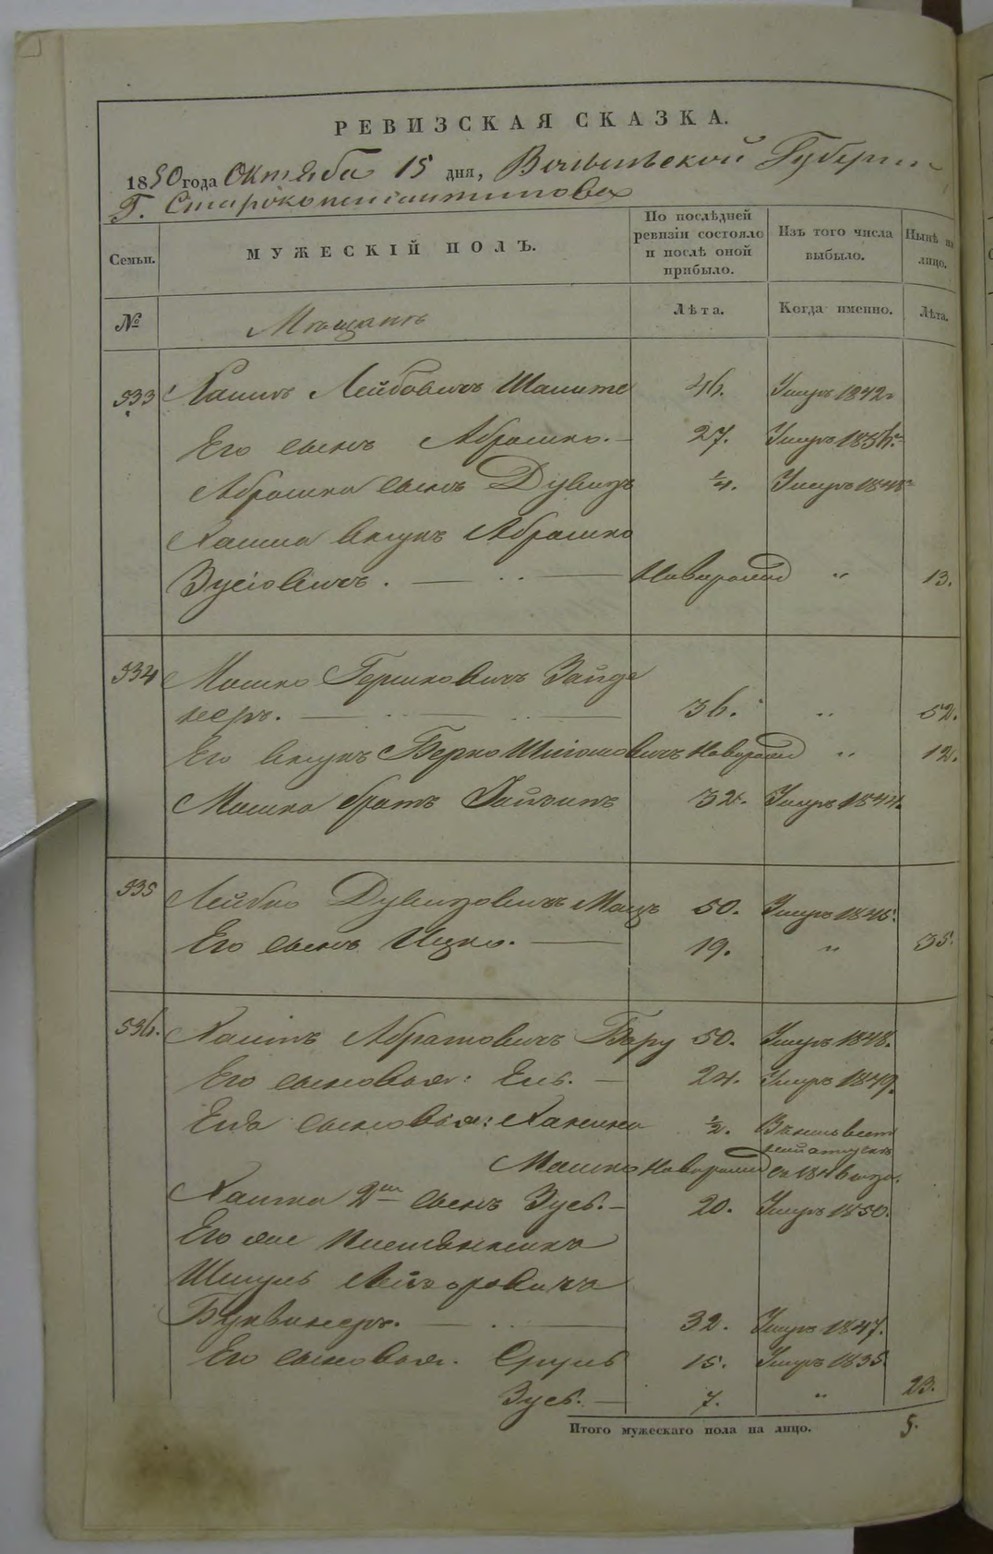 РЕВИЗСКАЯ СКАЗКА.
1850 года Октября 15 дня, Волынской Губернии
Г. Староконстантинова
Семьи.
МУЖЕСКІЙ ПОЛЪ.
По послѣдней ревизіи состояло и послѣ оной прибыло.
Изъ того числа выбыло.
Нынѣ на лицо.
№
Мещанъ
Лѣта.
Когда именно.
Лѣта.
533 Хаимъ Лейбовичъ 46. Умеръ 1842
Его сынъ Абрашко. 27. Умеръ
Абрашка сынъ Дувидъ ¼. Умеръ
Хаима внукъ Абрашко
Зусіовичъ. Новорожд „ 13.
534 Мошко Гершковичъ Зайде
неръ. 36. „ 52.
Его внукъ Берко Новорожд „ 12.
Мошка братъ 32. Умеръ 1844.
535 Лейбко Дувидовичъ 50. Умеръ
Его сынъ Ицко. 19. „ 35.
536. Хаимъ Абрамовичъ 50. Умеръ 1848.
Его сыновья: Ель. 24. Умеръ 1849.
Еля сыновья: ½.
Мошко Новорожд
Хаима 2й сынъ Зусь. 20. Умеръ 1850.
Его же племянникъ
Шмуль
32. Умеръ 1847.
Его сыновья. Сруль 15. Умеръ 1835.
Зусь. 7. „ 23.
Итого мужескаго пола на лицо. 5.